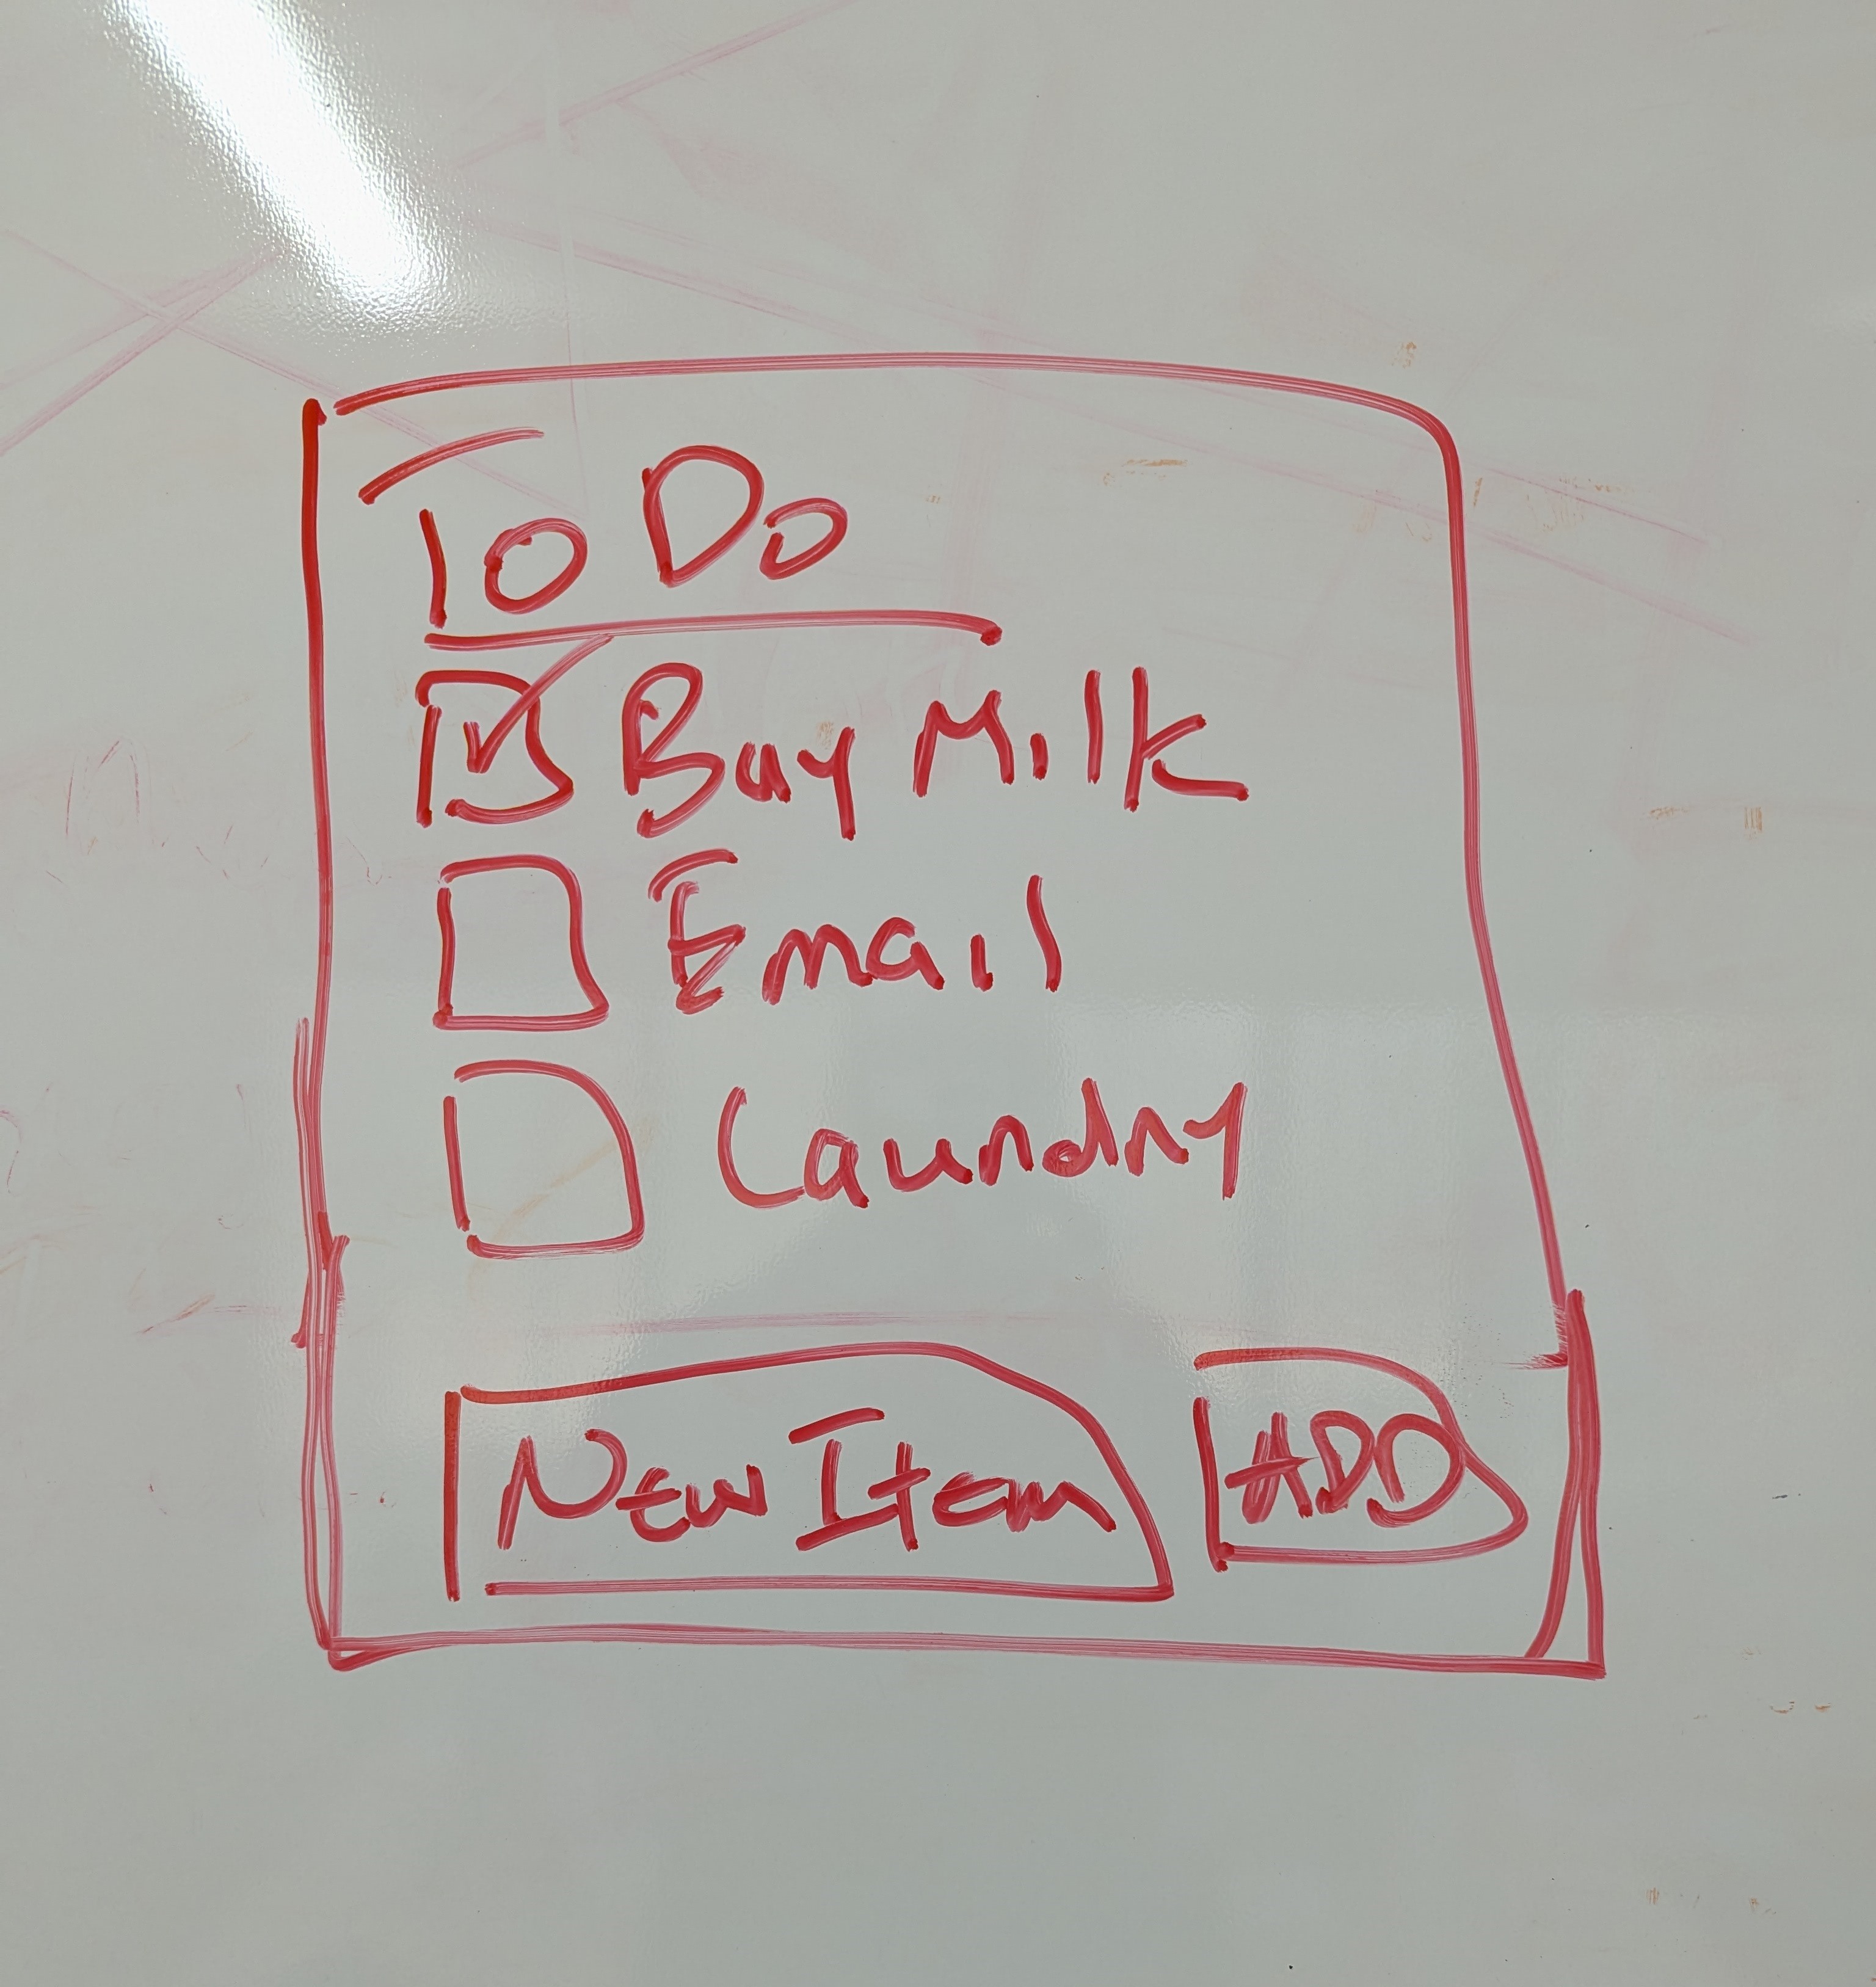 To Do
Buy Milk
Email
Laundry
New Item
ADD